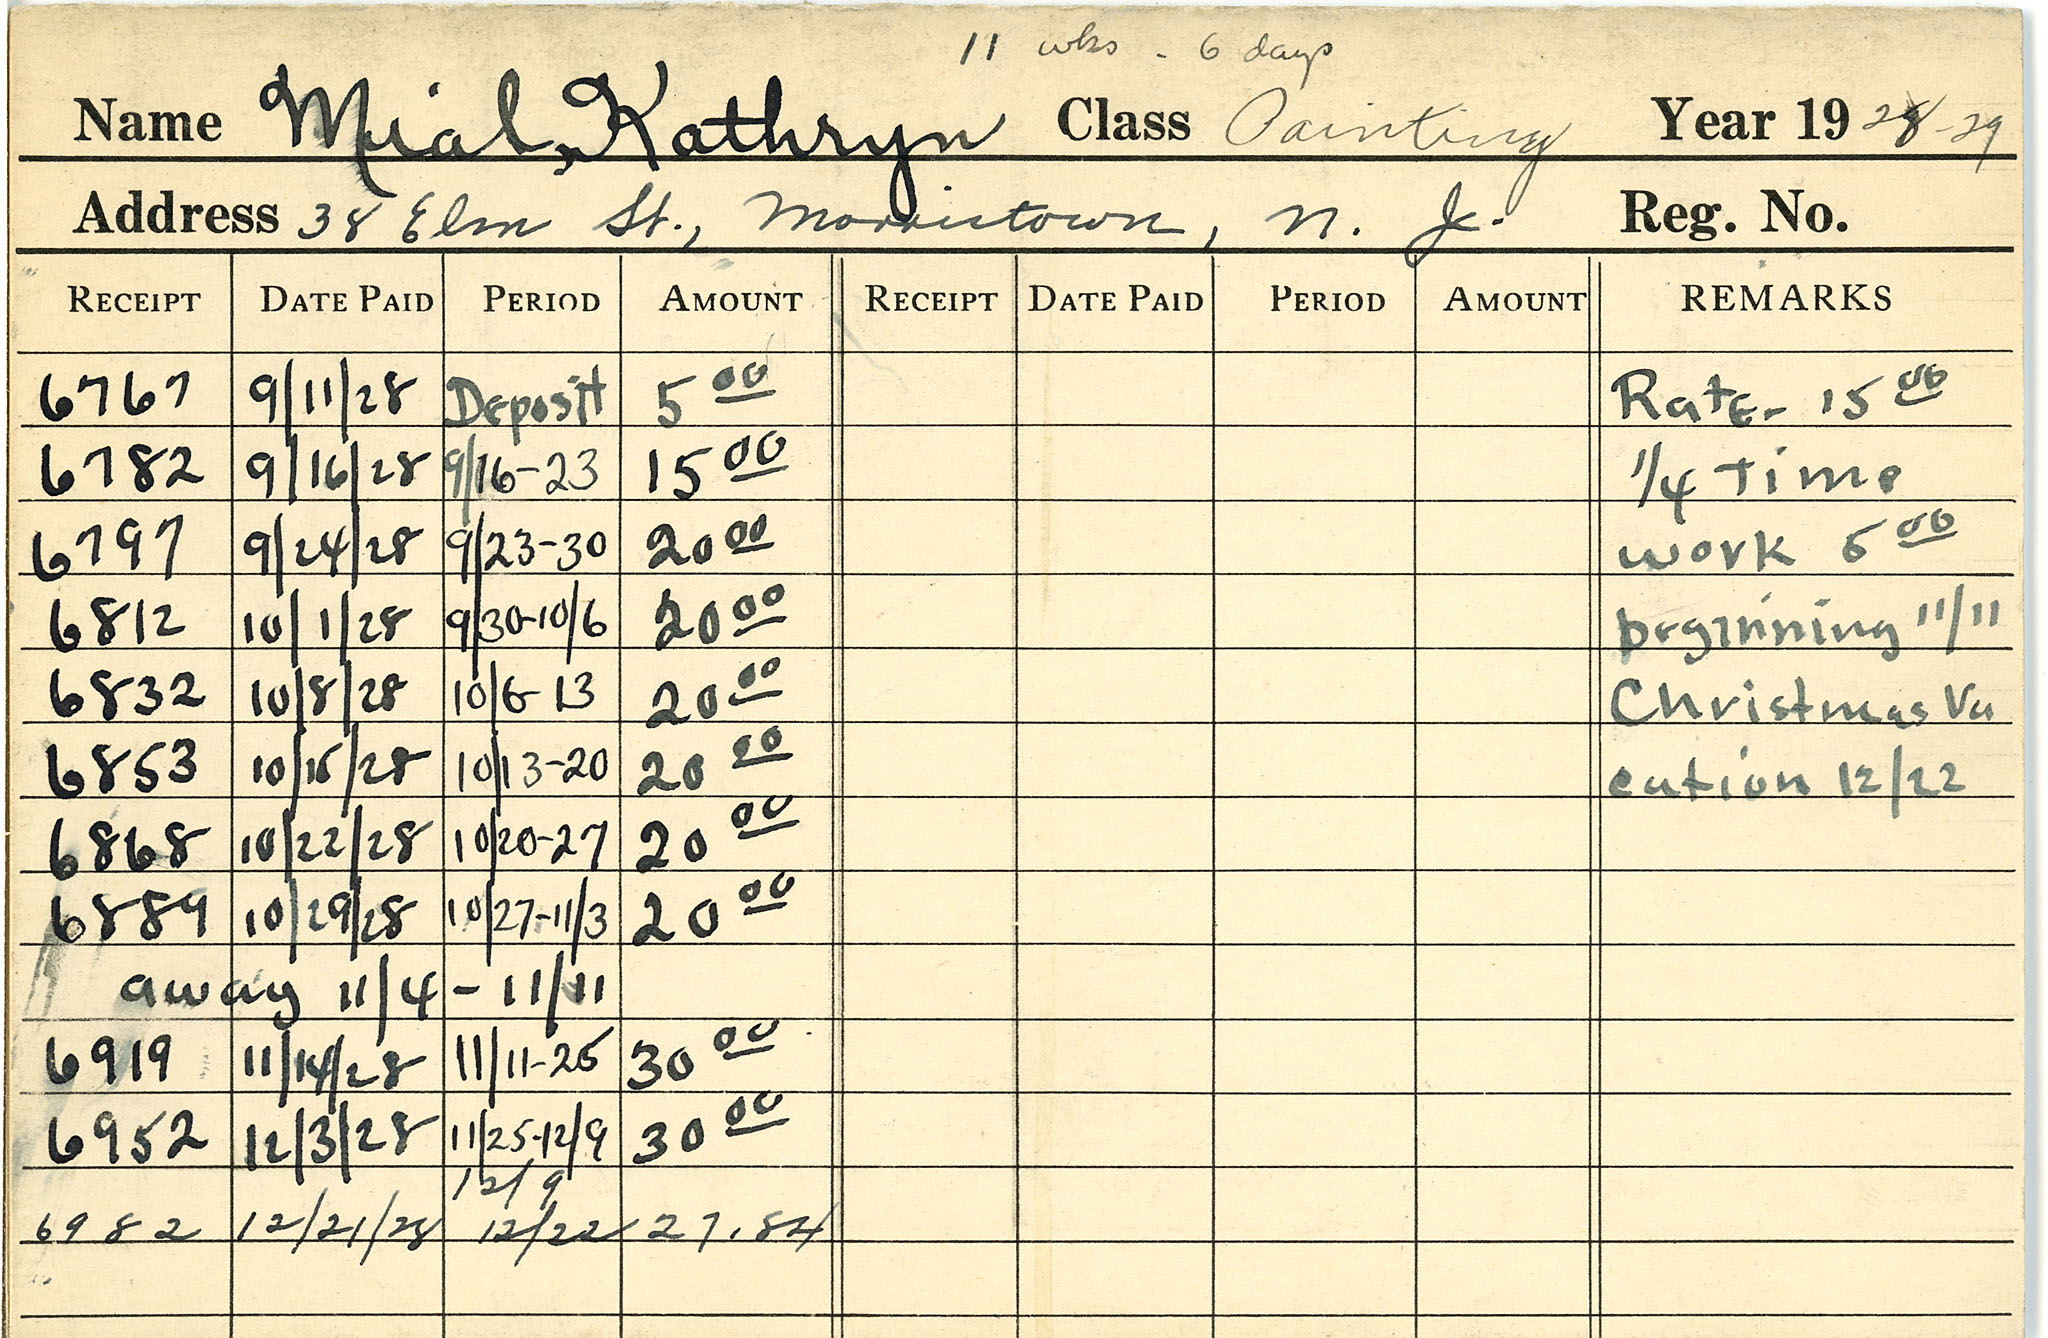 11 wks - 6 days
Name Mial, Kathryn Class Painting Year 19 28-29
Address 38 Elm St., Morristown, N. J. Reg. No.
RECEIPT DATE PAID PERIOD AMOUNT RECEIPT DATE PAID PERIOD AMOUNT REMARKS
6767 9/11/28 Deposit 5 00 Rate- 15 00
6782 9/16/28 9/16-23 15 00 1/4 Time
6797 9/24/28 9/23-30 20 00 work 5 00
6812 10/1/28 9/30-10/6 20 00 beginning 11/11
6832 10/8/28 10/6-13 20 00 Christmas Va
6853 10/15/28 10/13-20 20 00 cation 12/22
6868 10/22/28 10/20-27 20 00
6889 10/29/28 10/27-11/3 20 00
away 11/4 - 11/11
6919 11/14/28 11/11-25 30 00
6952 12/3/28 11/25-12/9 30 00
12/9
6982 12/21/28 12/22 27.84